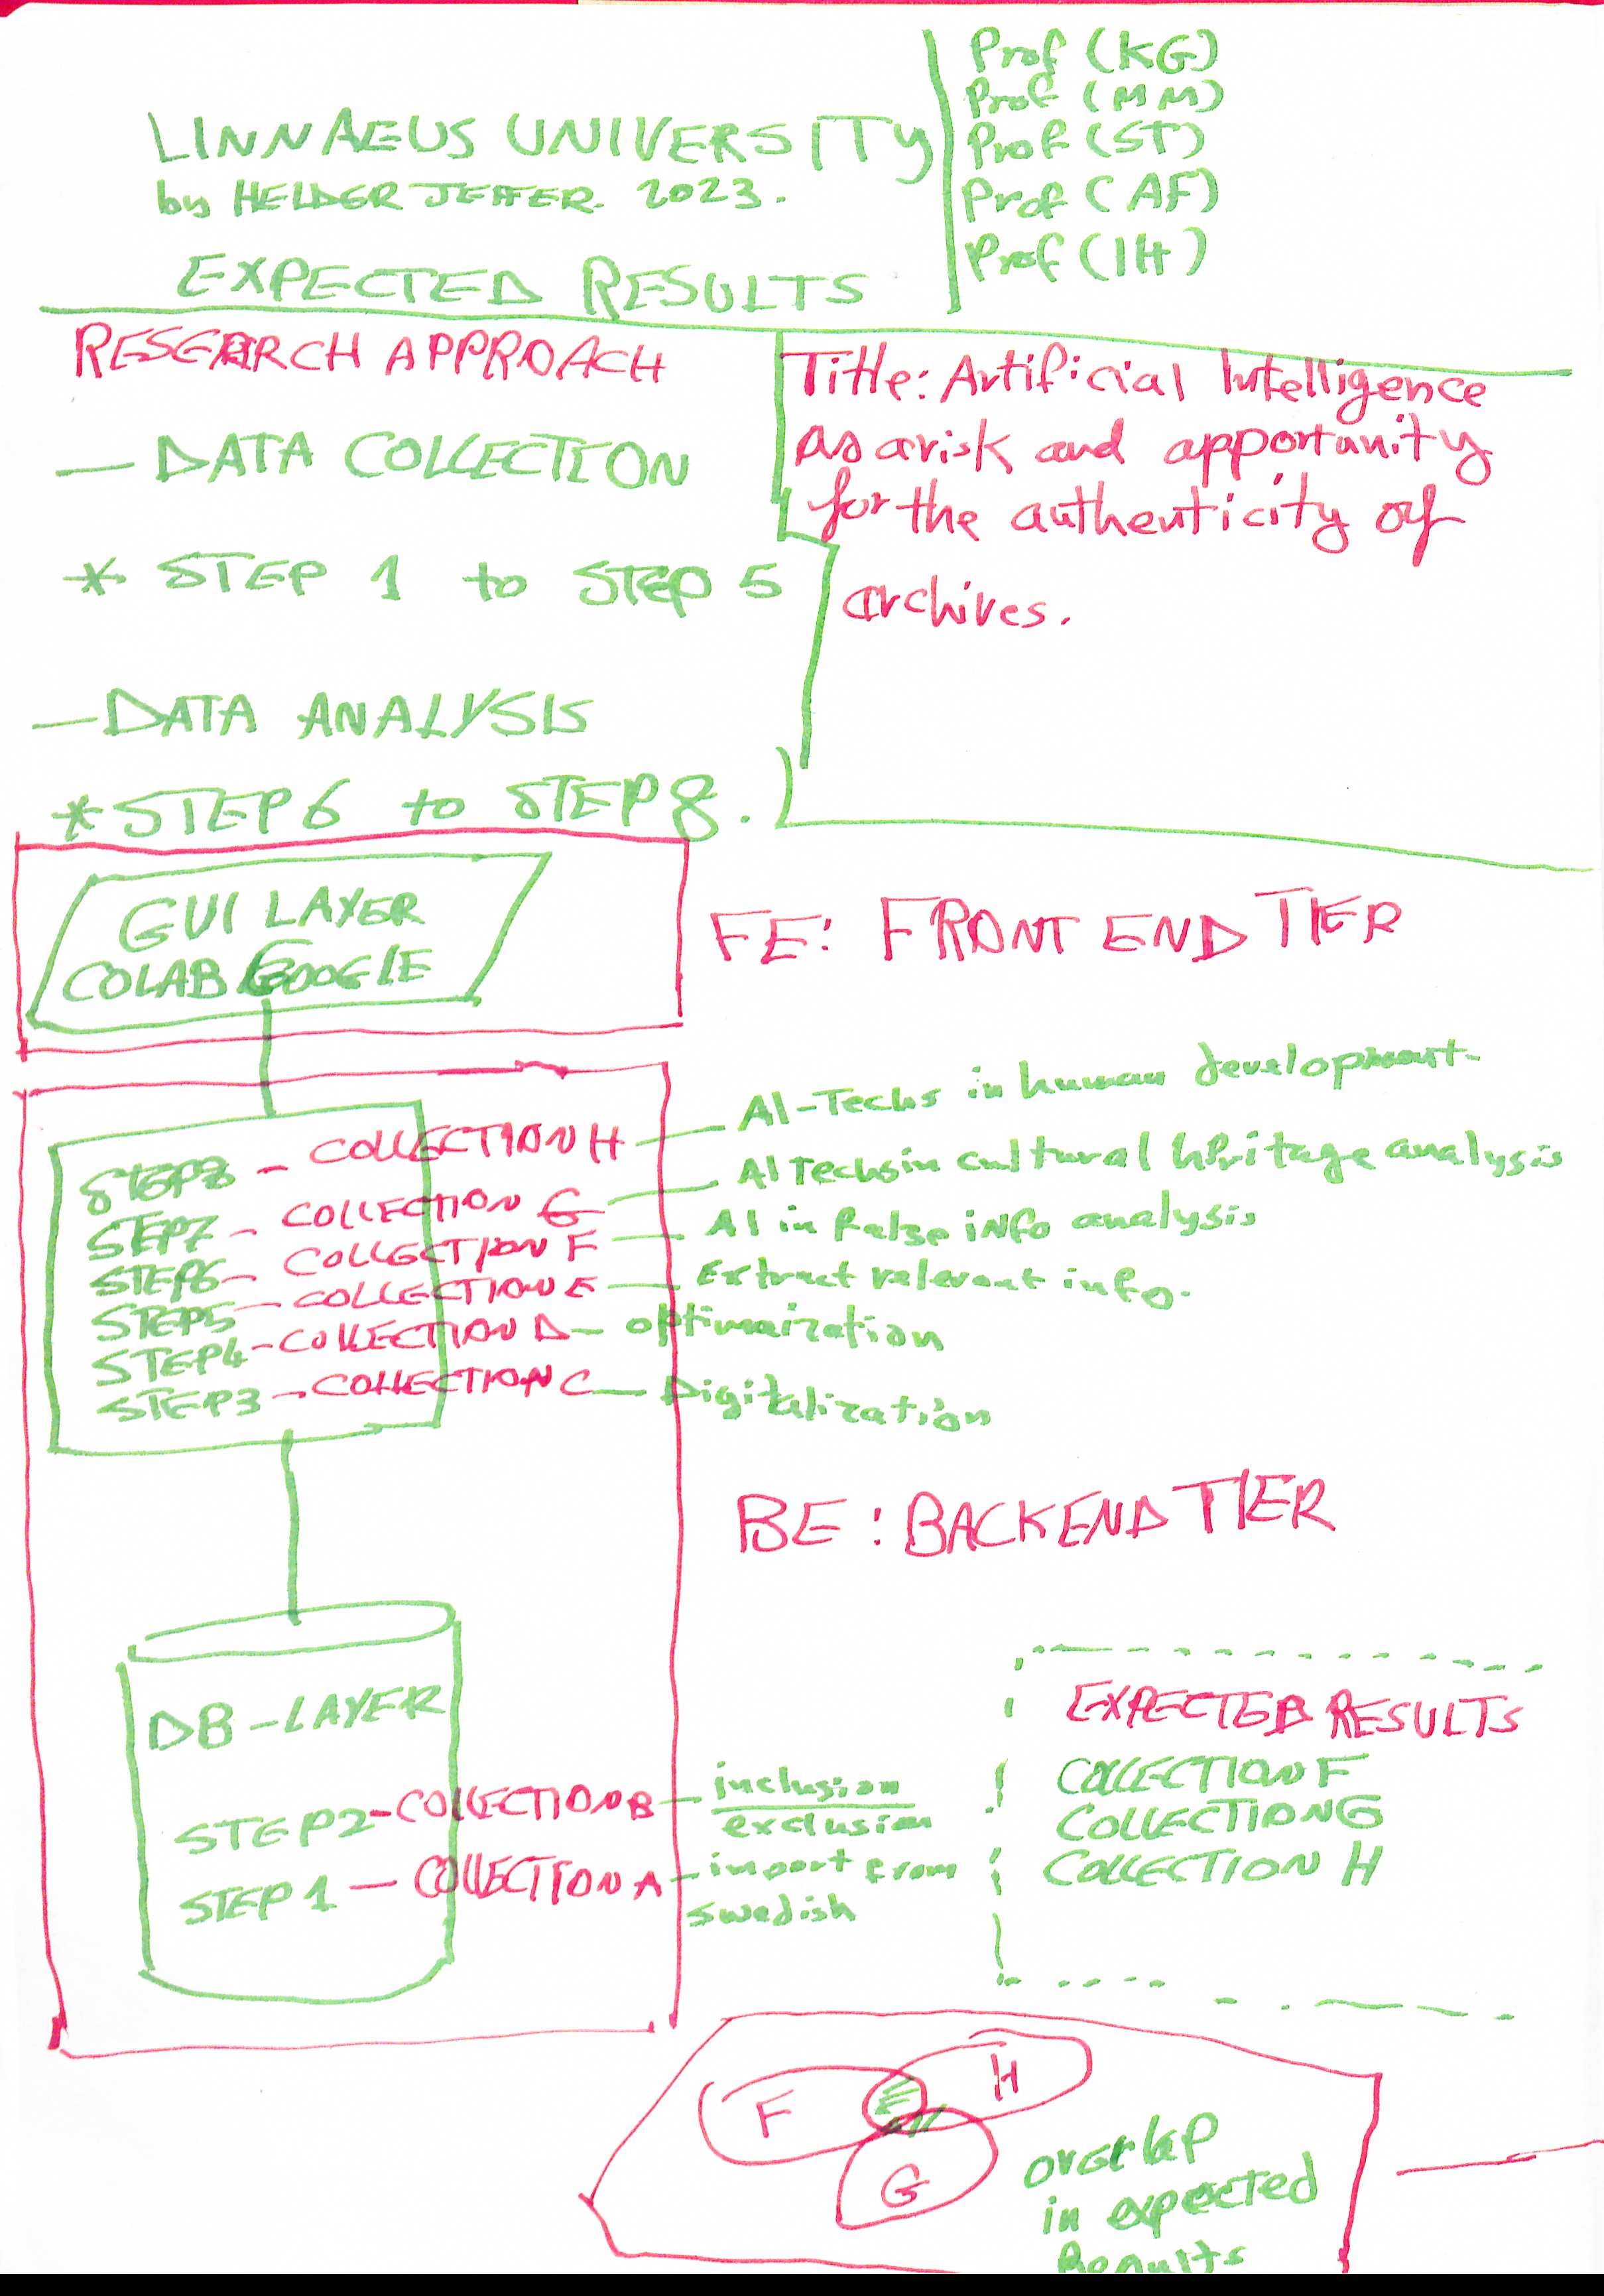 LINNAEUS UNIVERSITY
by HELDER JEFFER. 2023.
EXPECTED RESULTS
Prof (KG)
Prof (MM)
Prof (ST)
Prof (AF)
Prof (IH)
RESEARCH APPROACH
— DATA COLLECTION
* STEP 1 to STEP 5
— DATA ANALYSIS
* STEP 6 to STEP 8.
Title: Artificial Intelligence
as a risk and apportunity
for the authenticity of
archives.
GUI LAYER
COLAB GOOGLE
FE: FRONT END TIER
STEP8 - COLLECTION H — AI-Techs in human development-
STEP7 - COLLECTION G — AI Techs in cultural heritage analysis
STEP6 - COLLECTION F — AI in false info analysis
STEP5 - COLLECTION E — Extract relevant info.
STEP4 - COLLECTION D — optimaization
STEP3 - COLLECTION C — Digitalization
BE: BACKEND TIER
DB-LAYER
STEP2 - COLLECTION B — inclusion
exclusion
STEP 1 — COLLECTION A — import from
swedish
EXPECTED RESULTS
COLLECTION F
COLLECTION G
COLLECTION H
F
E
H
G
overlap
in expected
Results